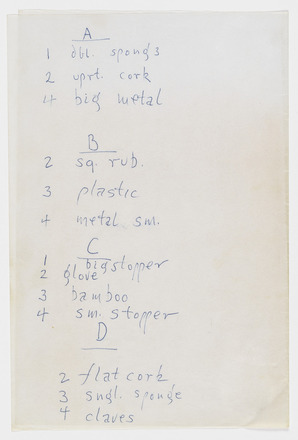 A
1 dbl. sponge
2 uprt. cork
4 big metal
B
2 sq. rub.
3 plastic
4 metal sm.
C
1 big stopper
2 glove
3 bamboo
4 sm. stopper
D
2 flat cork
3 sngl. sponge
4 claves